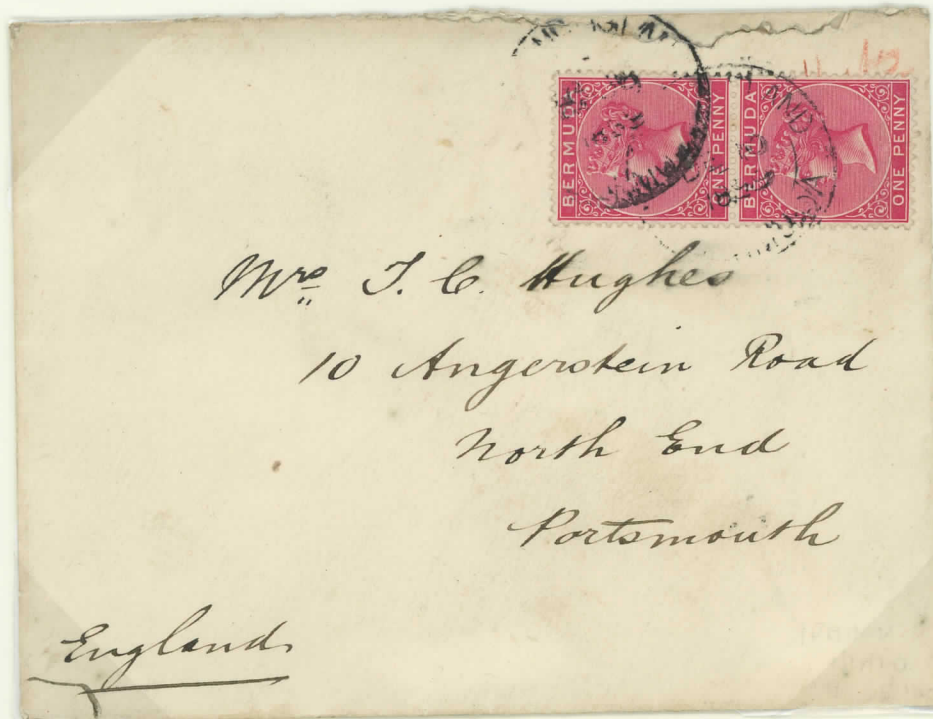 BERMUDA ONE PENNY
BERMUDA ONE PENNY
Mrs. T. C. Hughes
10 Angerstein Road
North End
Portsmouth
England